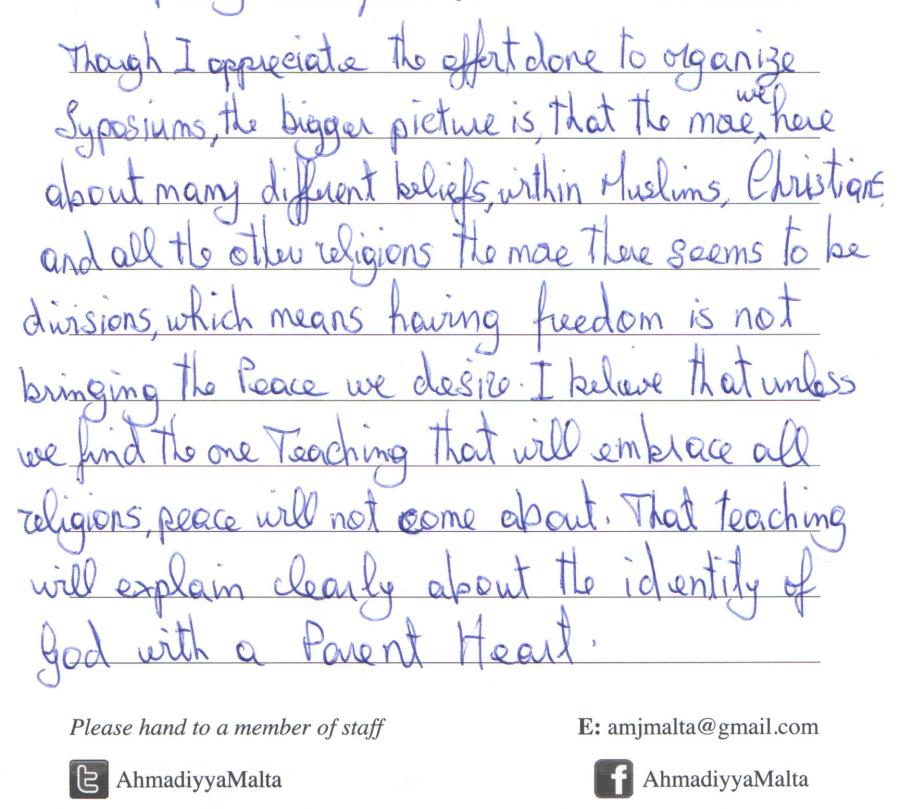 Though I appreciate the effort done to organize
Syposiums, the bigger picture is, that the more, we hear
about many different beliefs, within Muslims, Christians,
and all the other religions the more there seems to be
divisions, which means having freedom is not
bringing the Peace we desire. I believe that unless
we find the one Teaching that will embrace all
religions, peace will not come about. That teaching
will explain clearly about the identity of
God with a Parent Heart.
Please hand to a member of staff
E: amjmalta@gmail.com
AhmadiyyaMalta
AhmadiyyaMalta